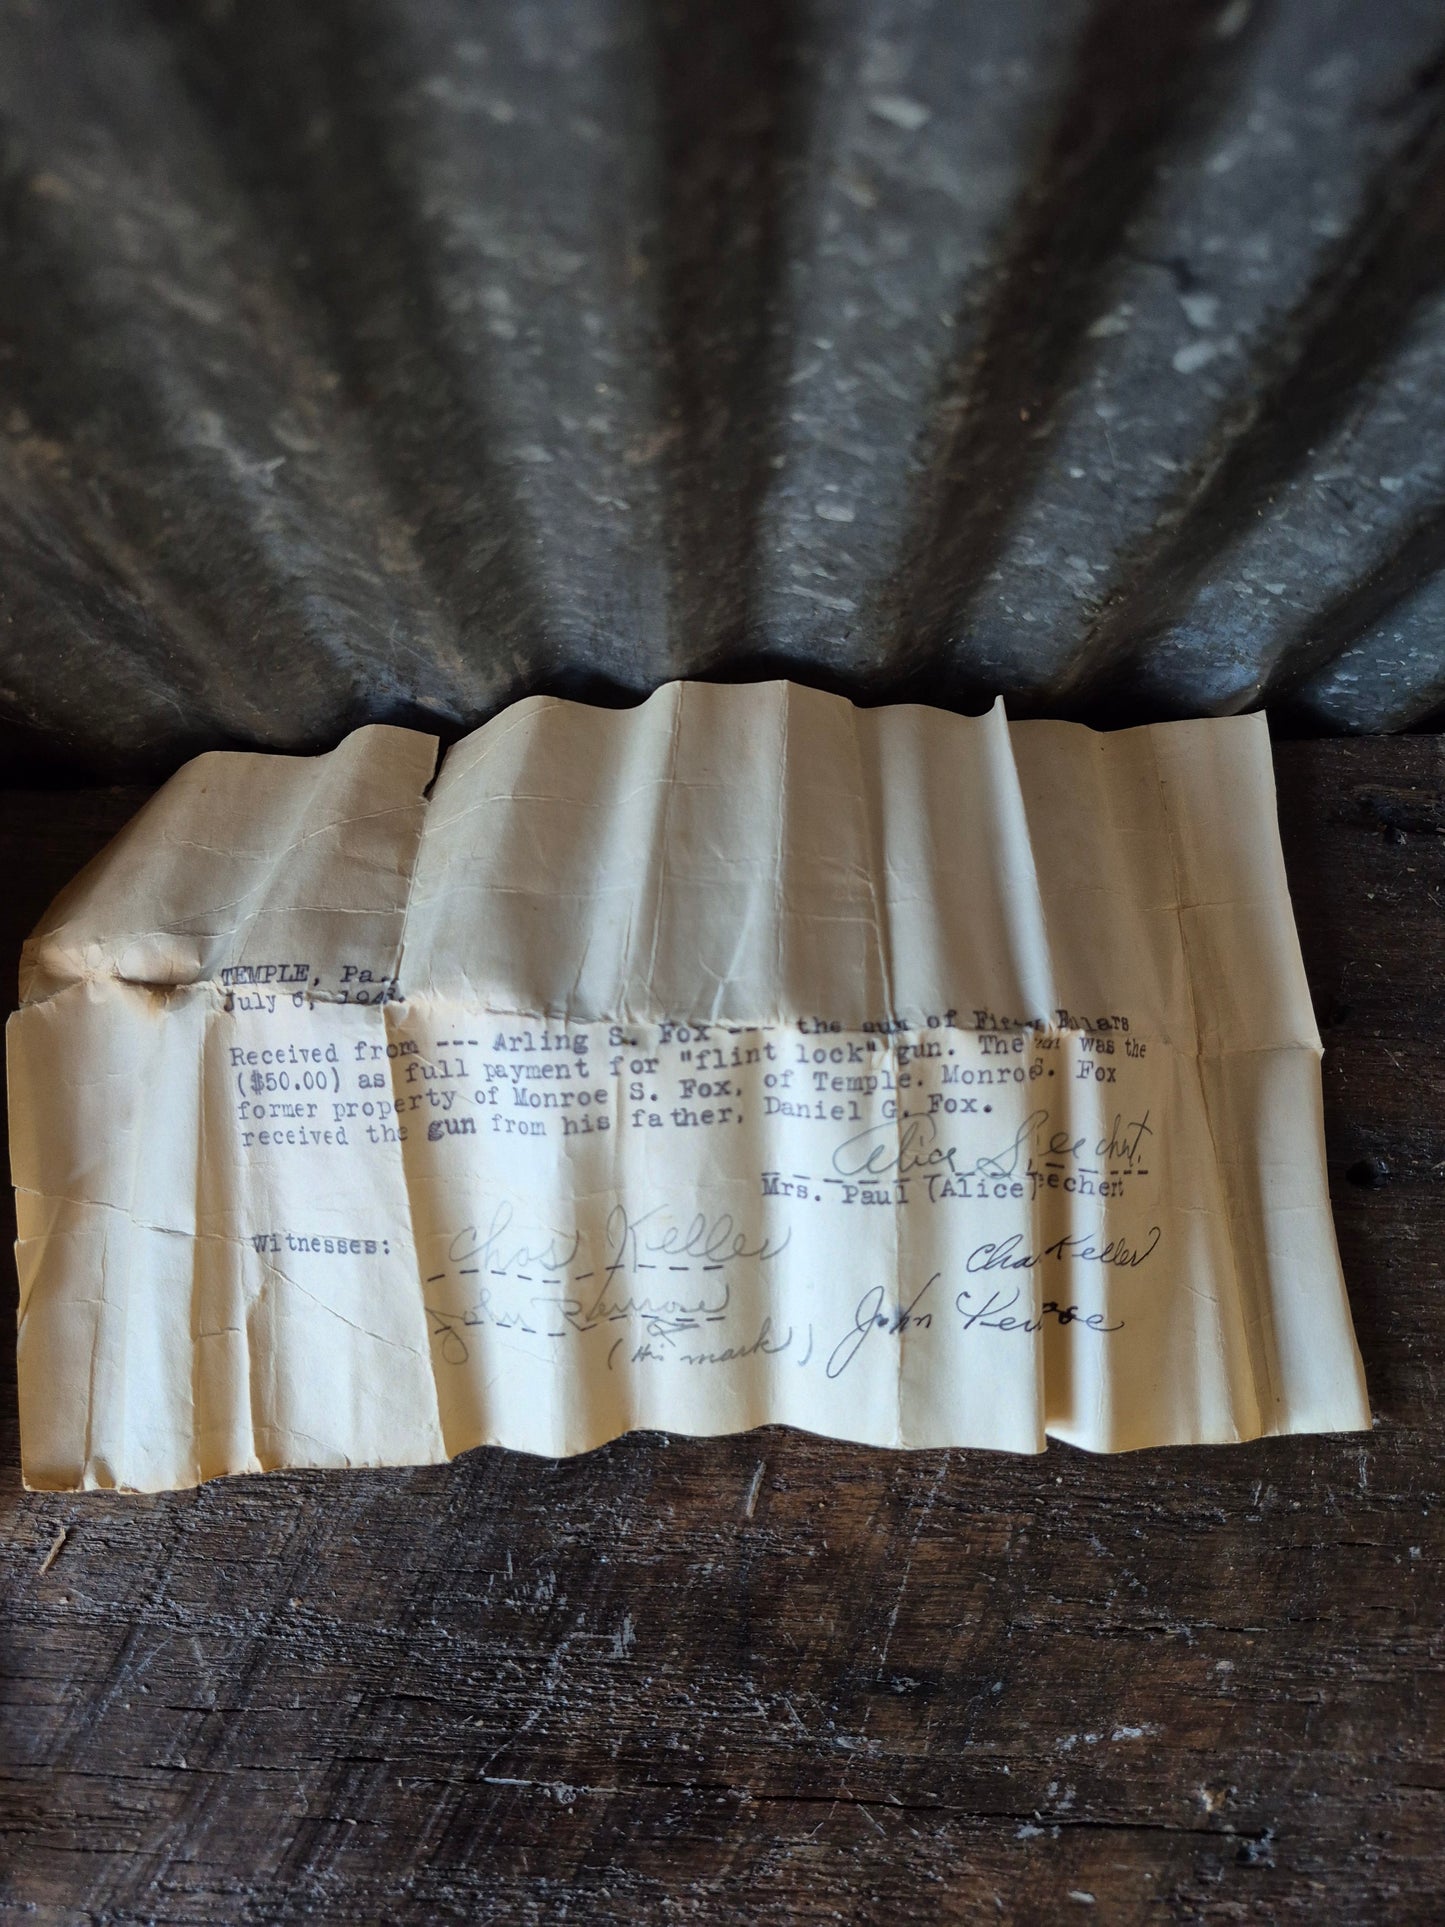 TEMPLE, Pa.,
July 6,
Received from --- Arling S. Fox --- the sum of Fifty Dollars
($50.00) as full payment for "flint lock" gun. The gun was the
former property of Monroe S. Fox, of Temple. Monroe S. Fox
received the gun from his father, Daniel G. Fox.
Alice
Mrs. Paul (Alice)
Witnesses: Chas Keller Chas Keller
John Penrose John Penrose
(His mark)